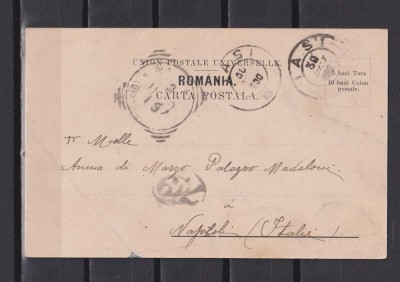 UNION POSTALE UNIVERSELLE
ROMÂNIA.
CARTA POSTALA.
5 bani Tara
10 bani Union
postale.
IASI
30
IASI
30
Melle
Anna di Marzo Palazzo Madaloni
á
Napoli (Italie)